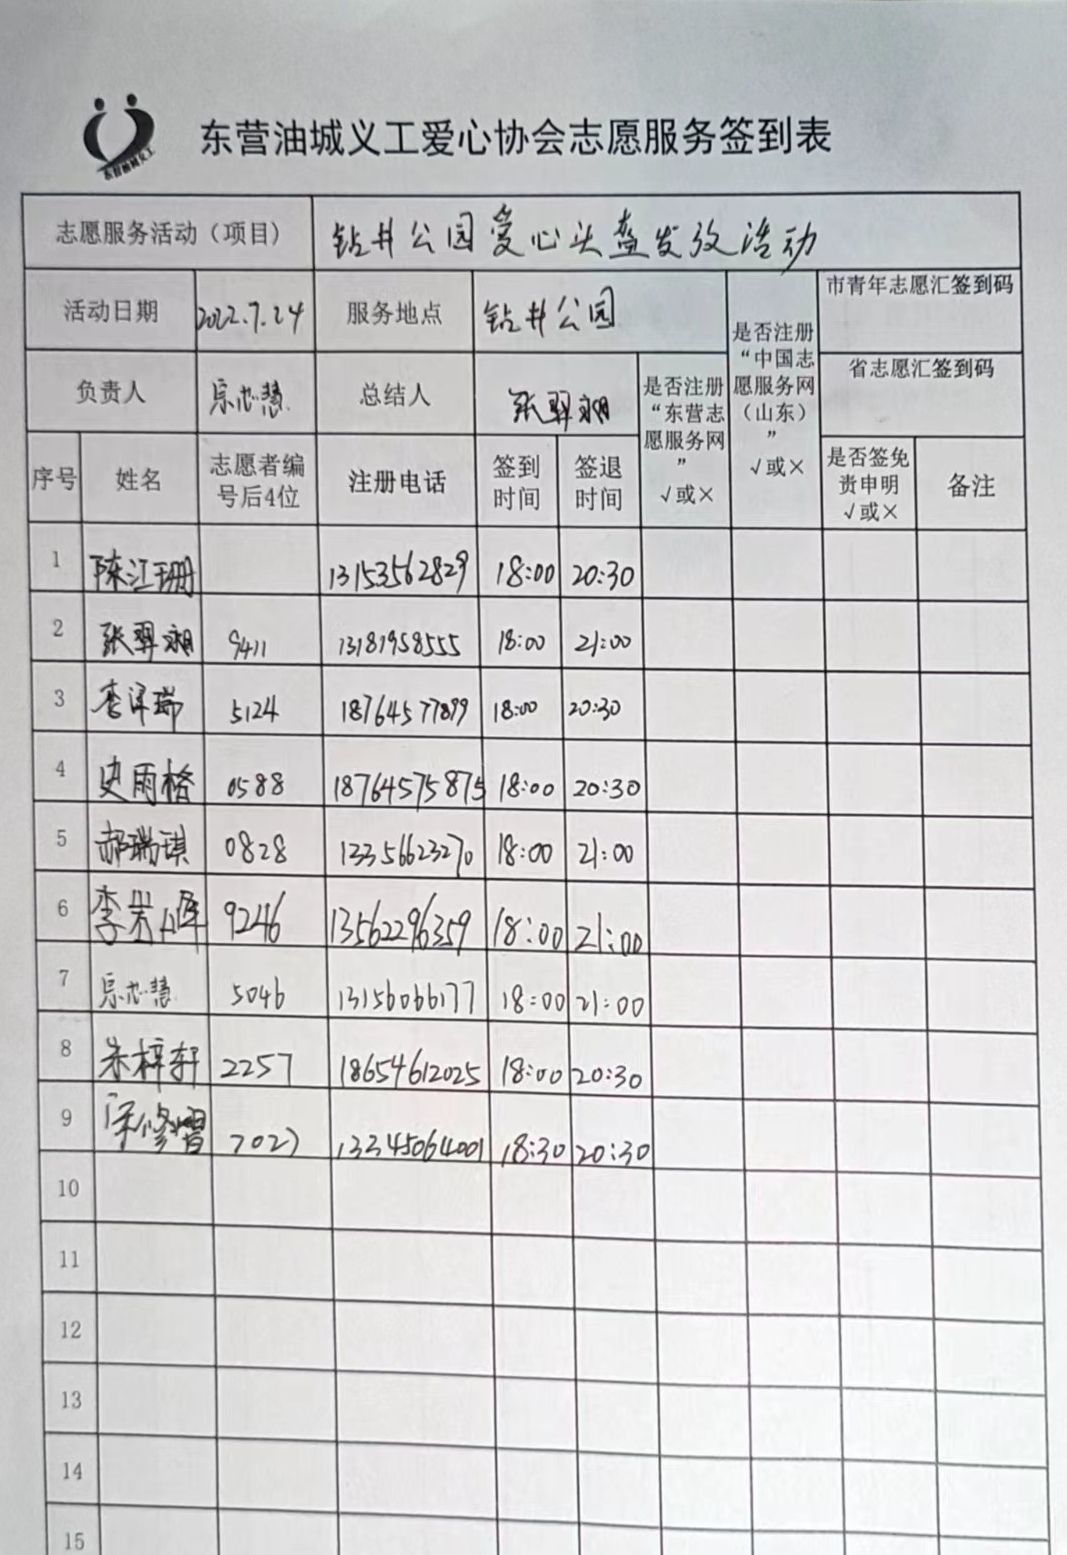 东营油城义工爱心协会志愿服务签到表
东营油城义工
志愿服务活动（项目） 钻井公园爱心头盔发放活动
活动日期 2022.7.24 服务地点 钻井公园 是否注册“中国志愿服务网（山东）” √或× 市青年志愿汇签到码
负责人 宗志慧 总结人 张羿翊 是否注册“东营志愿服务网” √或× 省志愿汇签到码
序号 姓名 志愿者编号后4位 注册电话 签到时间 签退时间 是否签免责申明 √或× 备注
1 陈江珊 13153562829 18:00 20:30
2 张羿翊 9411 13181958555 18:00 21:00
3 李泽瑞 5124 18764577899 18:00 20:30
4 史雨格 0588 18764575875 18:00 20:30
5 郝瑞琪 0828 13356623270 18:00 21:00
6 李 9246 13562296359 18:00 21:00
7 宗志慧 5046 13156066177 18:00 21:00
8 朱梓轩 2257 18654612025 18:00 20:30
9 7027 13345064001 18:30 20:30
10
11
12
13
14
15